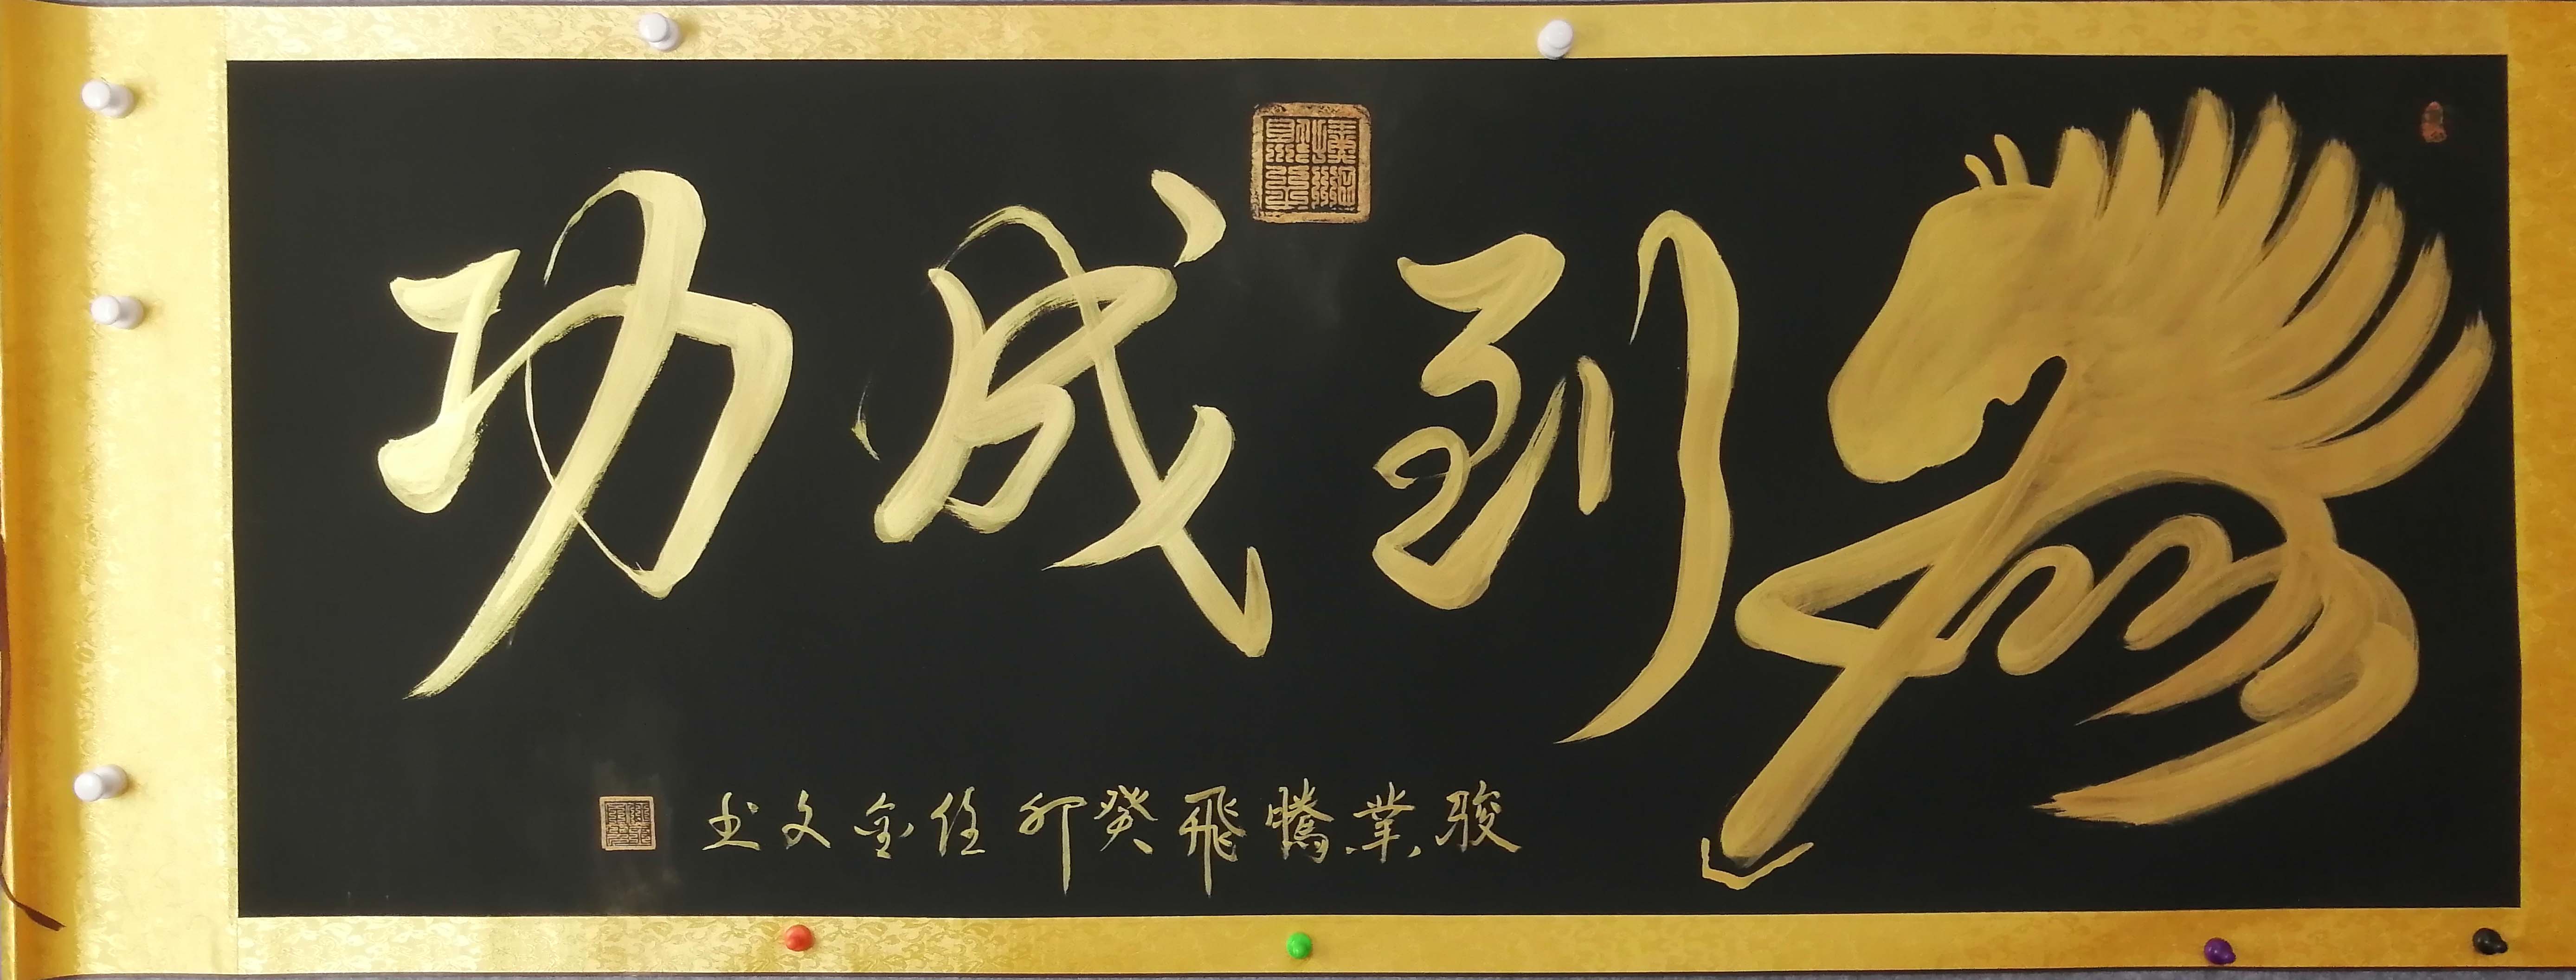 馬到成功
駿業騰飛癸卯任金文书